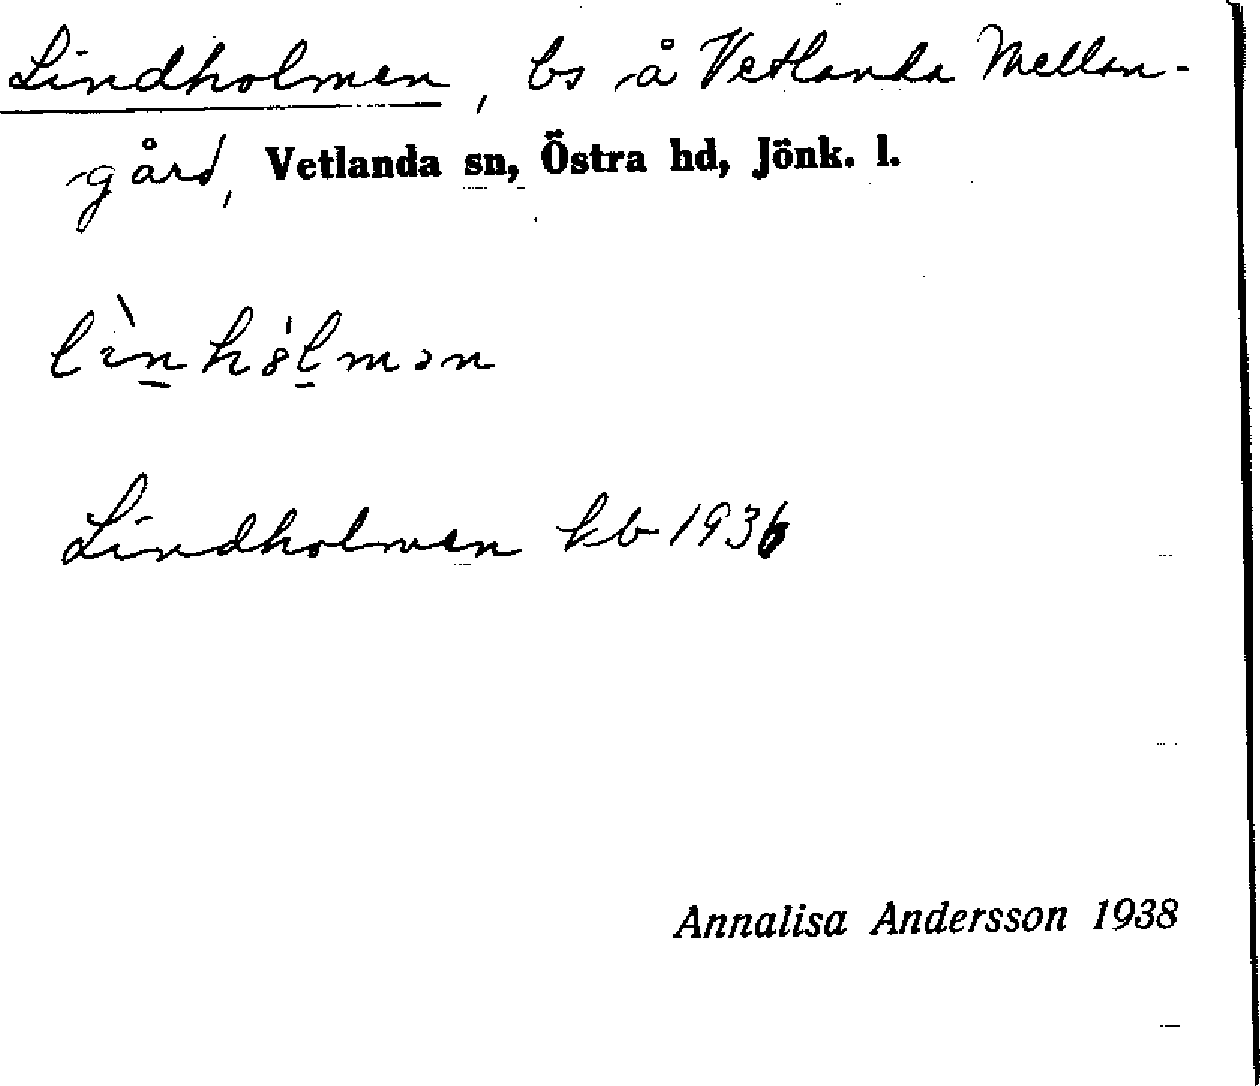 Lindholmen, bs å Vetlanda Mellan-
gård, Vetlanda sn, Östra hd, Jönk. l.
lìnhólmən
Lindholmen kb 1936
Annalisa Andersson 1938